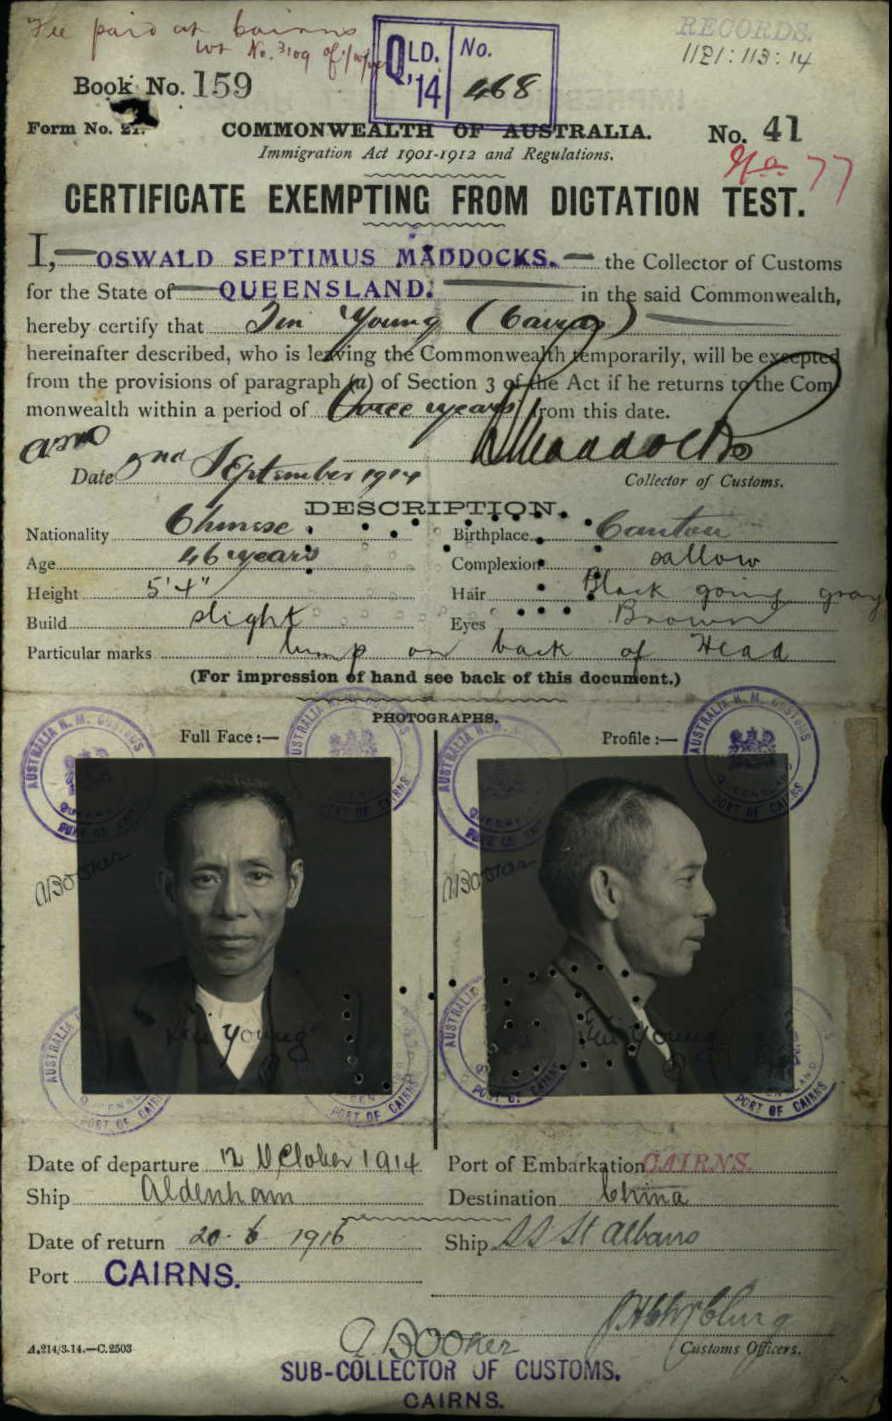 Fee paid at Cairns
QLD. '14 No. 468
RECORDS.
1121:113:14
Book No. 159
Form No. 21.
COMMONWEALTH OF AUSTRALIA.
No. 41
Immigration Act 1901-1912 and Regulations.
77
CERTIFICATE EXEMPTING FROM DICTATION TEST.
I, OSWALD SEPTIMUS MADDOCKS. the Collector of Customs
for the State of QUEENSLAND. in the said Commonwealth,
hereby certify that Young (Cairns)
hereinafter described, who is leaving the Commonwealth temporarily, will be excepted
from the provisions of paragraph (a) of Section 3 of the Act if he returns to the Com
monwealth within a period of three years from this date.
Maddocks
Date 2nd September 1914 Collector of Customs.
DESCRIPTION.
Nationality Chinese Birthplace Canton
Age 46 years Complexion sallow
Height 5'4" Hair Black going gray
Build slight Eyes Brown
Particular marks lump on back of Head
(For impression of hand see back of this document.)
PHOTOGRAPHS.
Full Face:— Profile:—
AUSTRALIA H. M. CUSTOMS
QUEENSLAND
PORT OF CAIRNS
A Booker A Booker
Young Young
Date of departure 12 October 1914 Port of Embarkation CAIRNS.
Ship Aldenham Destination China
Date of return 20. 6 1916 Ship SS St Albans
Port CAIRNS.
A Booker
A.214/3.14.—C.2503 Customs Officers.
SUB-COLLECTOR OF CUSTOMS.
CAIRNS.